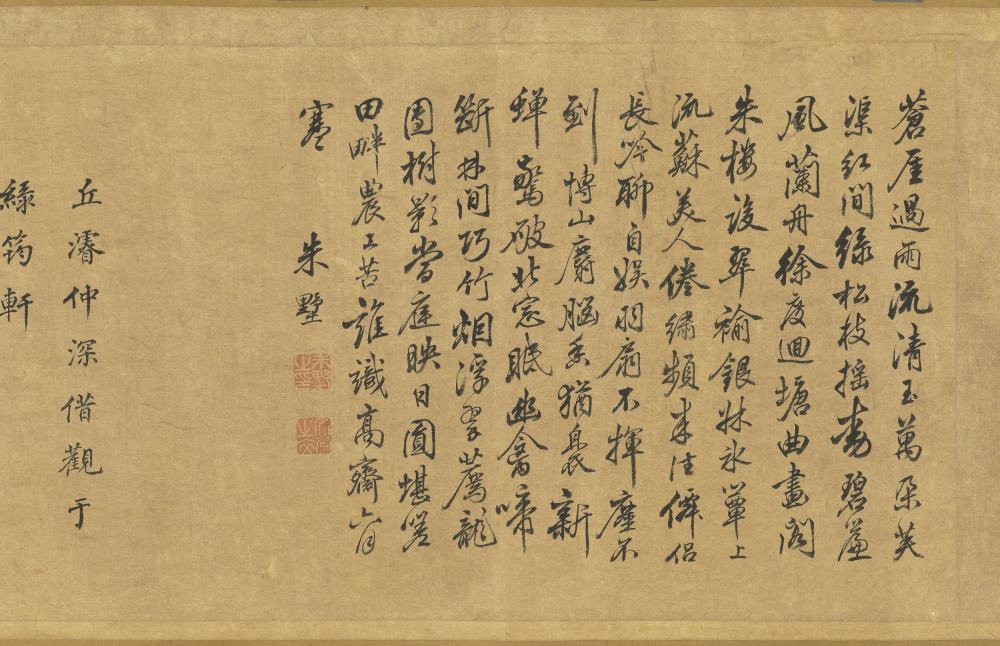 蒼厓過雨流清玉萬朵芙
渠紅間綠松枝搖動碧簾
風蘭舟徐度迴塘曲畫閣
朱樓設翠褕銀牀氷簟上
流蘇美人倦繡頻來往儔侶
長吟聊自娛羽扇不揮塵不
到博山麝腦香猶裊新
蟬驚破北窓眠幽禽啼
斷林間巧竹烟浮翠薦龍
團樹影當庭映日圓堪嗟
田畔農工苦誰識高齋六月
寒
朱墅
丘濬仲深借觀于
綠筠軒